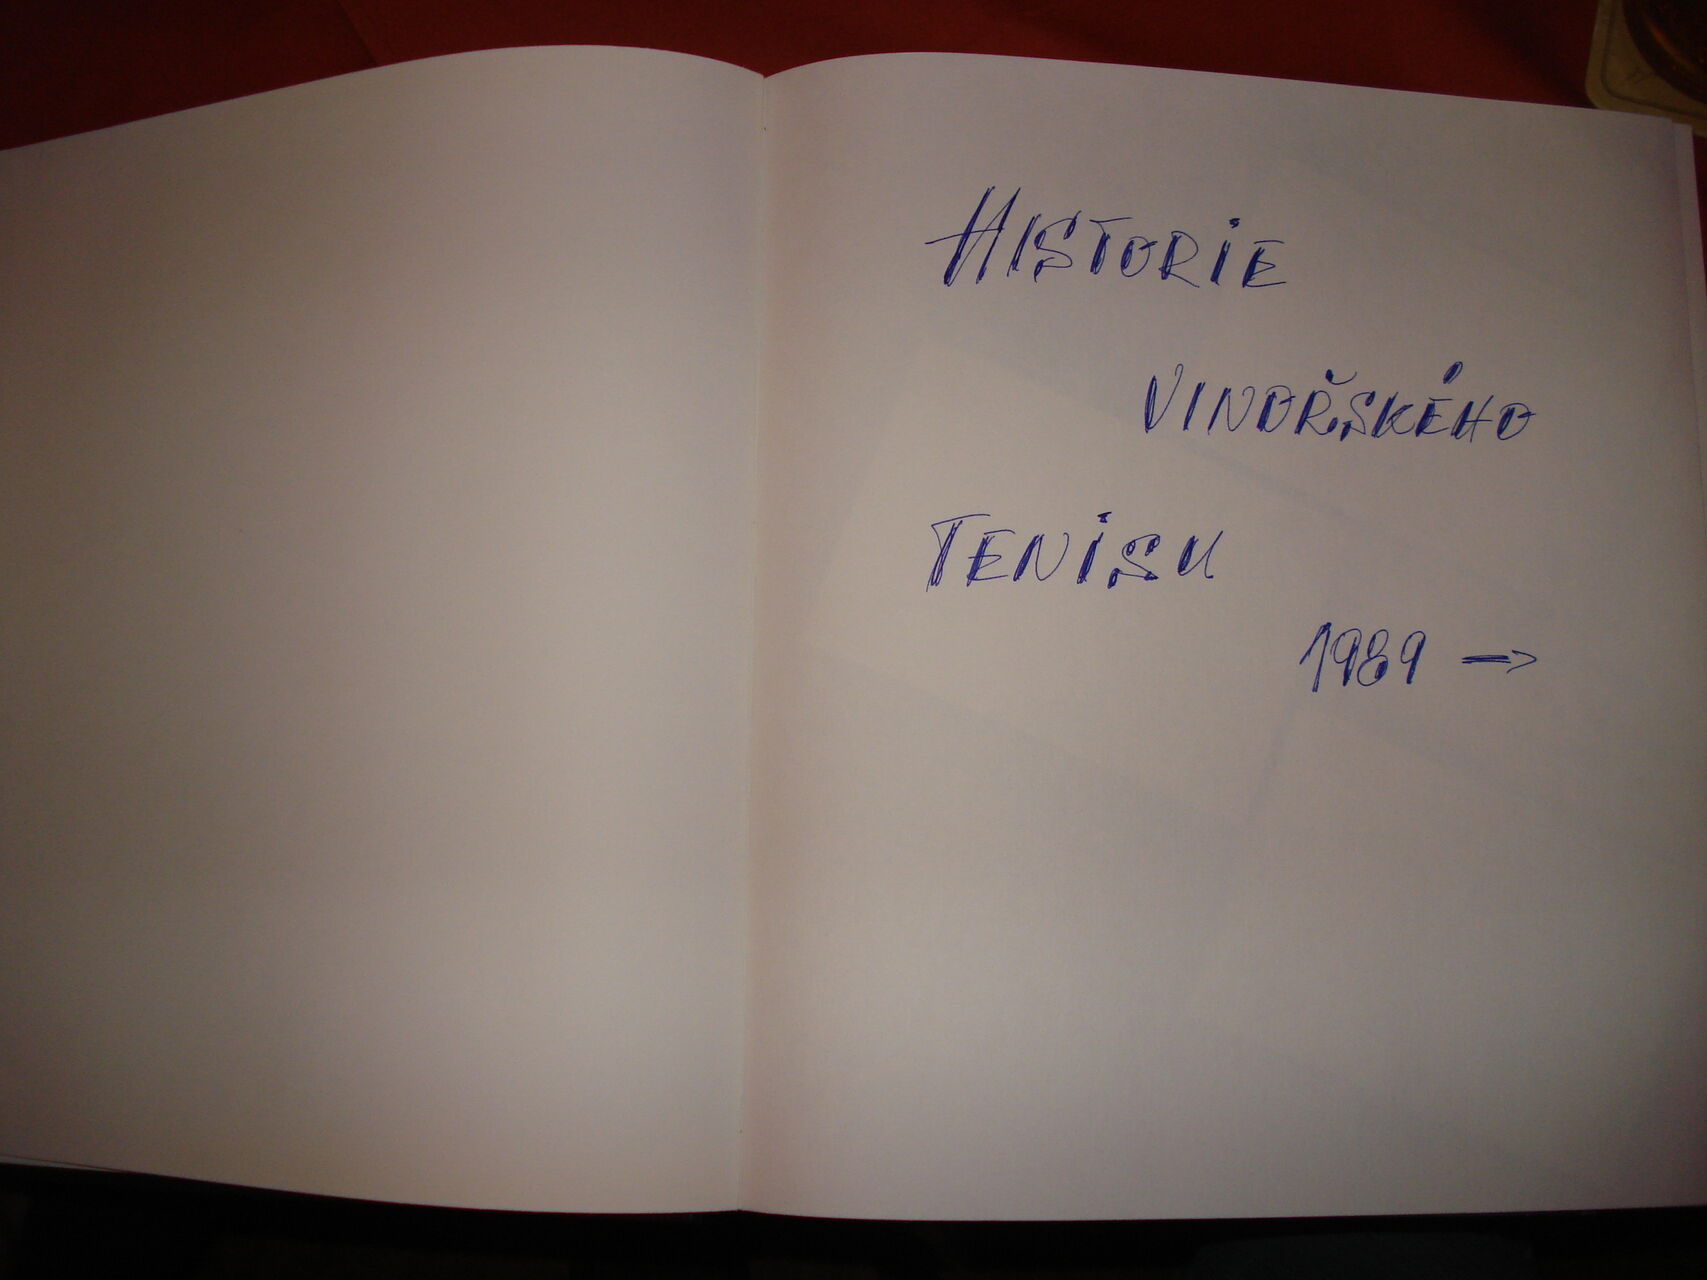 HISTORIE
VINOŘSKÉHO
TENISU
1989 →